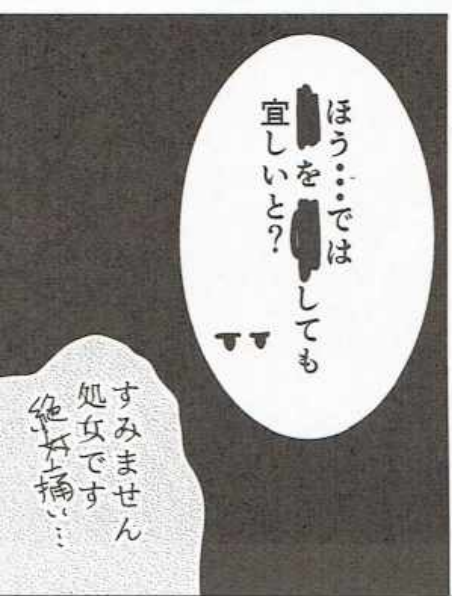 ほう…では
を しても
宜しいと？
すみません
処女です
絶対痛い…